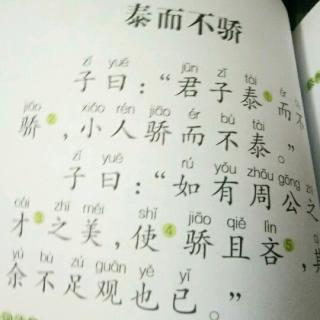 泰而不骄
zǐ yuē jūn zǐ tài ér
子曰：“君子泰①而不
jiāo xiǎo rén jiāo ér bù tài
骄②，小人骄而不泰。”
zǐ yuē rú yǒu zhōu gōng zī
子曰：“如有周公之
cái zhī měi shǐ jiāo qiě lìn
才③之美，使④骄且吝⑤，其
yú bù zú guān yě yǐ
余不足观也已。”